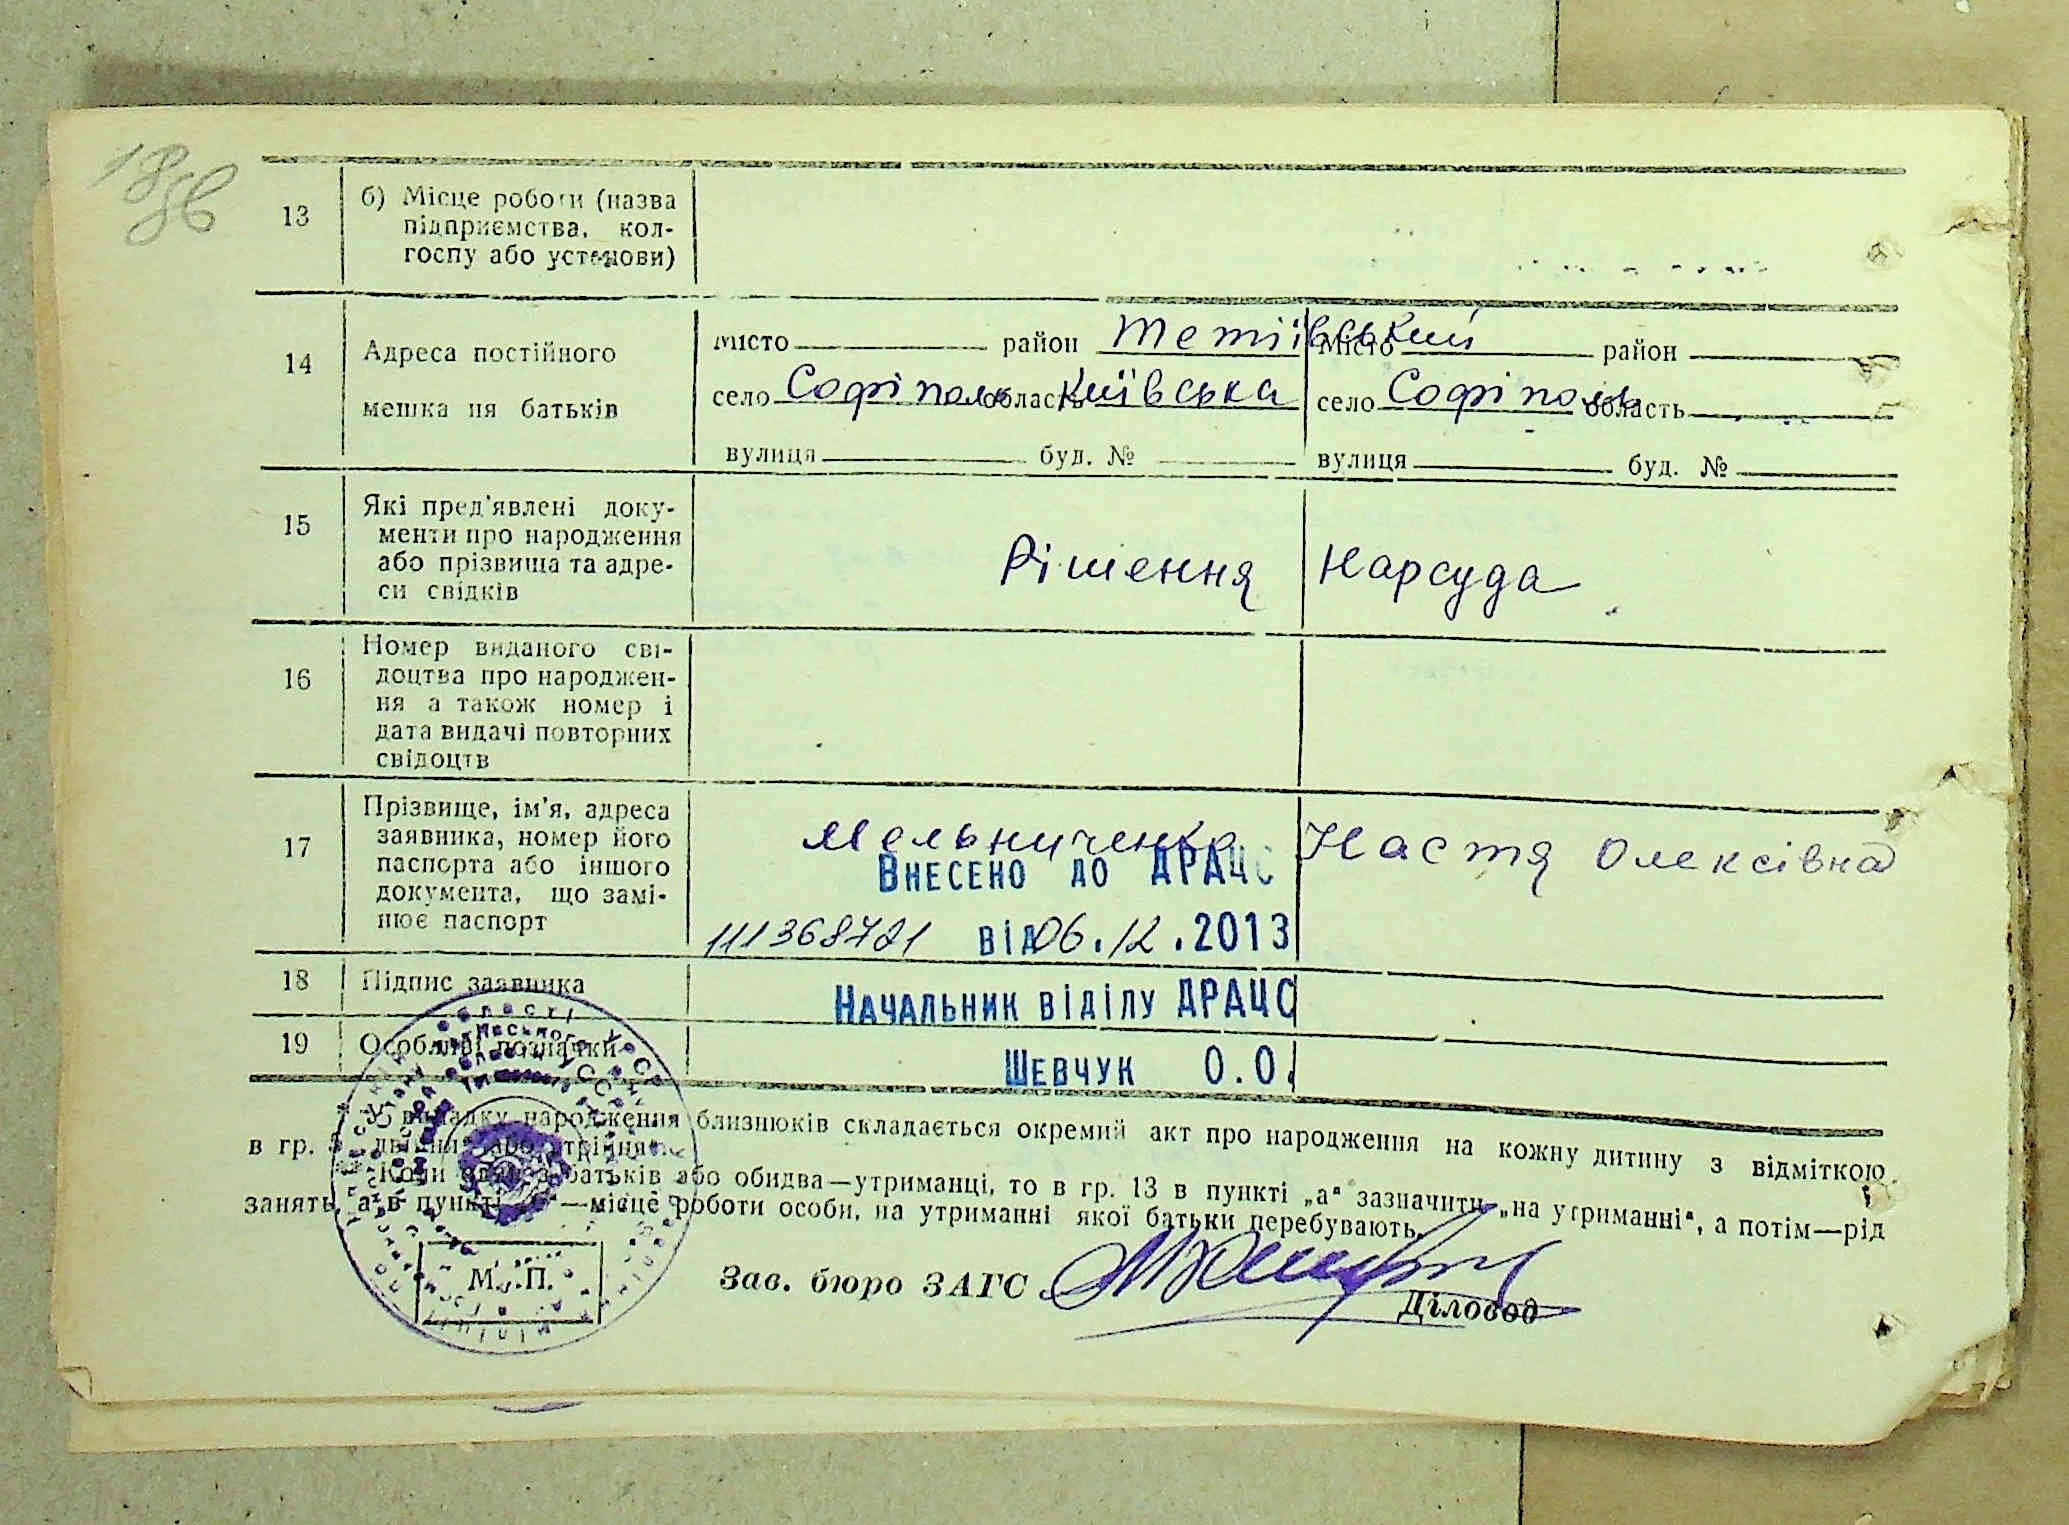 1856
13 б) Місце роботи (назва
підприємства, кол-
госпу або установи)
14 Адреса постійного
мешка ня батьків
місто район Тетіївський місто район
село Софіполь область Київська село Софіполь область
вулиця буд. № вулиця буд. №
15 Які пред'явлені доку-
менти про народження
або прізвища та адре-
си свідків
Рішення Нарсуда
16 Номер виданого сві-
доцтва про народжен-
ня а також номер і
дата видачі повторних
свідоцтв
17 Прізвище, ім'я, адреса
заявника, номер його
паспорта або іншого
документа, що замі-
нює паспорт
Мельниченко Настя Олексівна
Внесено до ДРАЦС
111368721 від 06.12.2013
18 Підпис заявника
Начальник відділу ДРАЦС
19 Особливі позначки
Шевчук О.О.
У випадку народження близнюків складається окремий акт про народження на кожну дитину з відміткою
в гр. двійня або трійня".
Коли один з батьків або обидва—утриманці, то в гр. 13 в пункті „а" зазначити „на утриманні", а потім—рід
занять, а в пункті —місце роботи особи, на утриманні якої батьки перебувають.
М. П.
Зав. бюро ЗАГС
Діловод